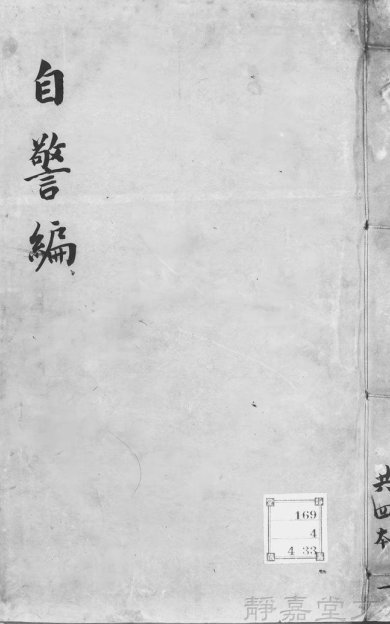 自警編
共四本
一
169
4
4 33
靜嘉堂文